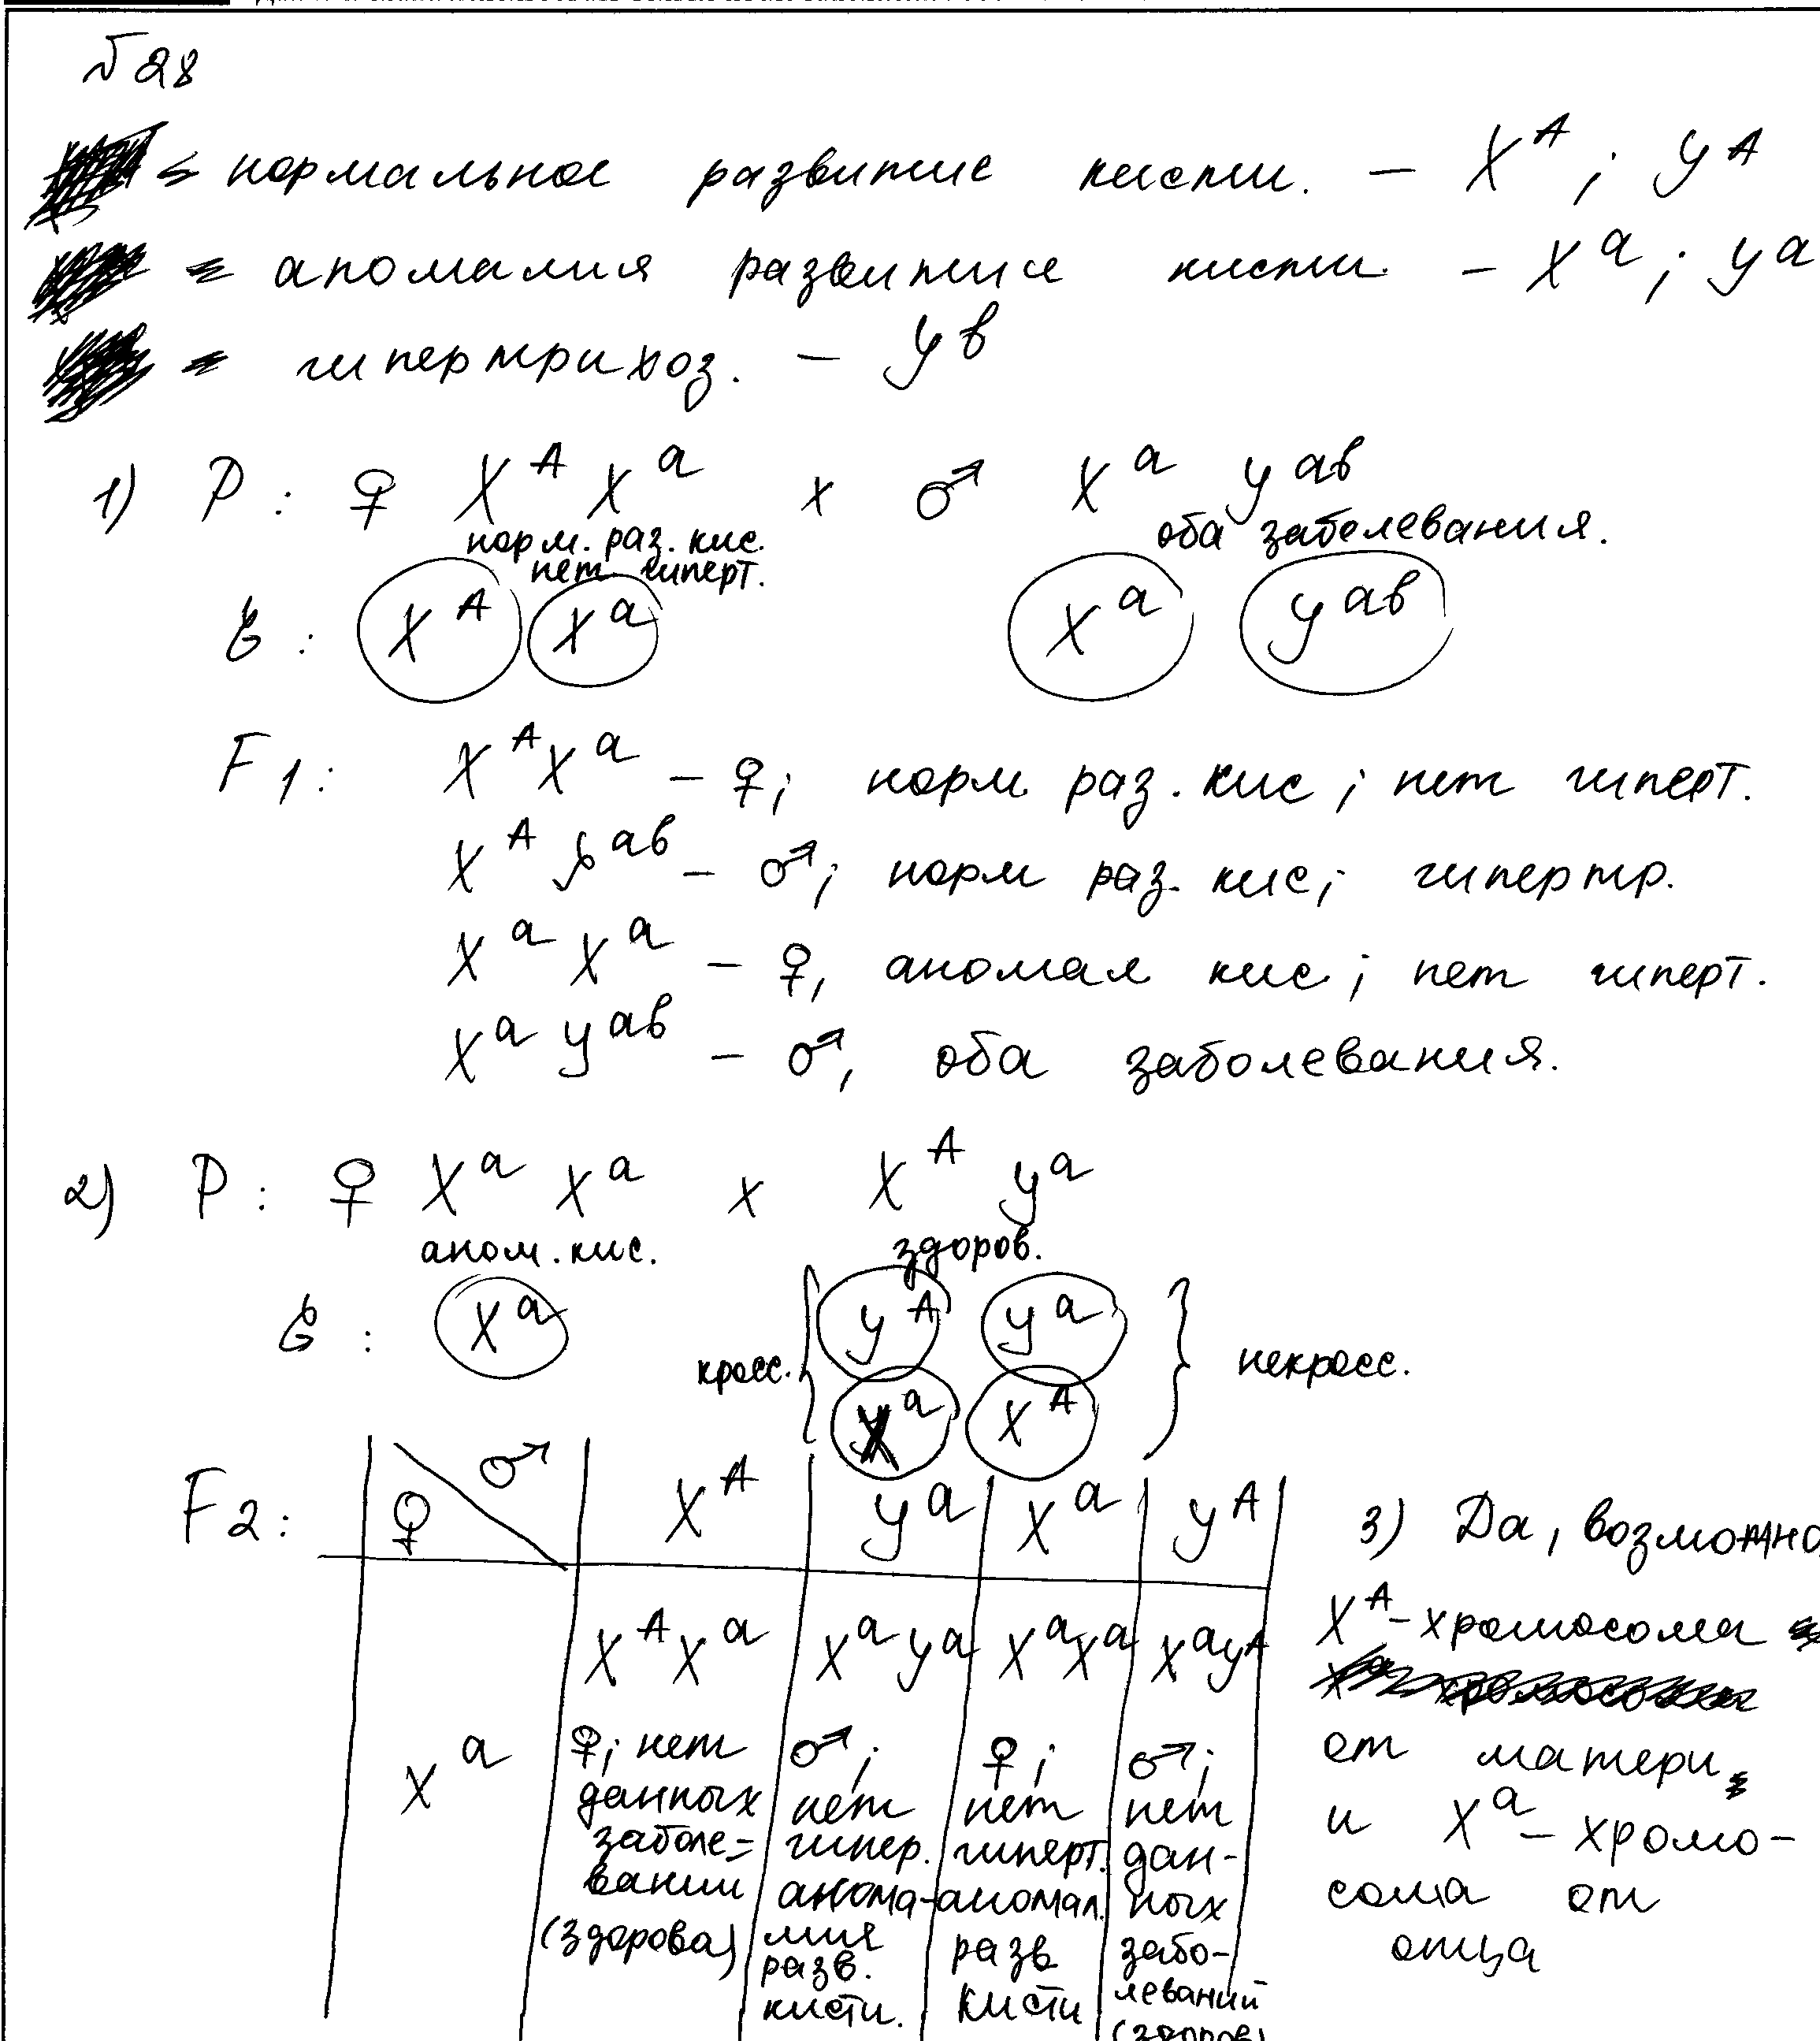 №28
= нормальное развитие кисти. – X^A ; Y^A
= аномалия развития кисти – X^a ; Y^a
= гипертрихоз. – Y^b
1) P : ♀ X^A X^a x ♂ X^a Y^ab
норм. раз. кис. оба заболевания.
нет гиперт.
G : X^A X^a X^a Y^ab
F1 : X^A X^a – ♀; норм раз. кис ; нет гиперт.
X^A Y^ab – ♂; норм раз. кис; гипертр.
X^a X^a – ♀, аномал кис ; нет гиперт.
X^a Y^ab – ♂, оба заболевания.
2) P : ♀ X^a X^a x X^A Y^a
аном. кис. здоров.
G : X^a кросс. { Y^A Y^a } некросс.
X^a X^A
F2 : ♀ ♂ X^A Y^a X^a Y^A
X^a
X^A X^a
♀; нет
данных
заболе=
вании
(здорова)
X^a Y^a
♂;
нет
гипер.
анома-
лия
разв.
кисти.
X^a X^a
♀;
нет
гиперт.
аномал.
разв
кисти
X^a Y^A
♂;
нет
дан-
ных
забо-
леваний
(здоров)
3) Да, возможно
X^A – хромосома
от матери,
и X^a – хромо-
сома от
отца